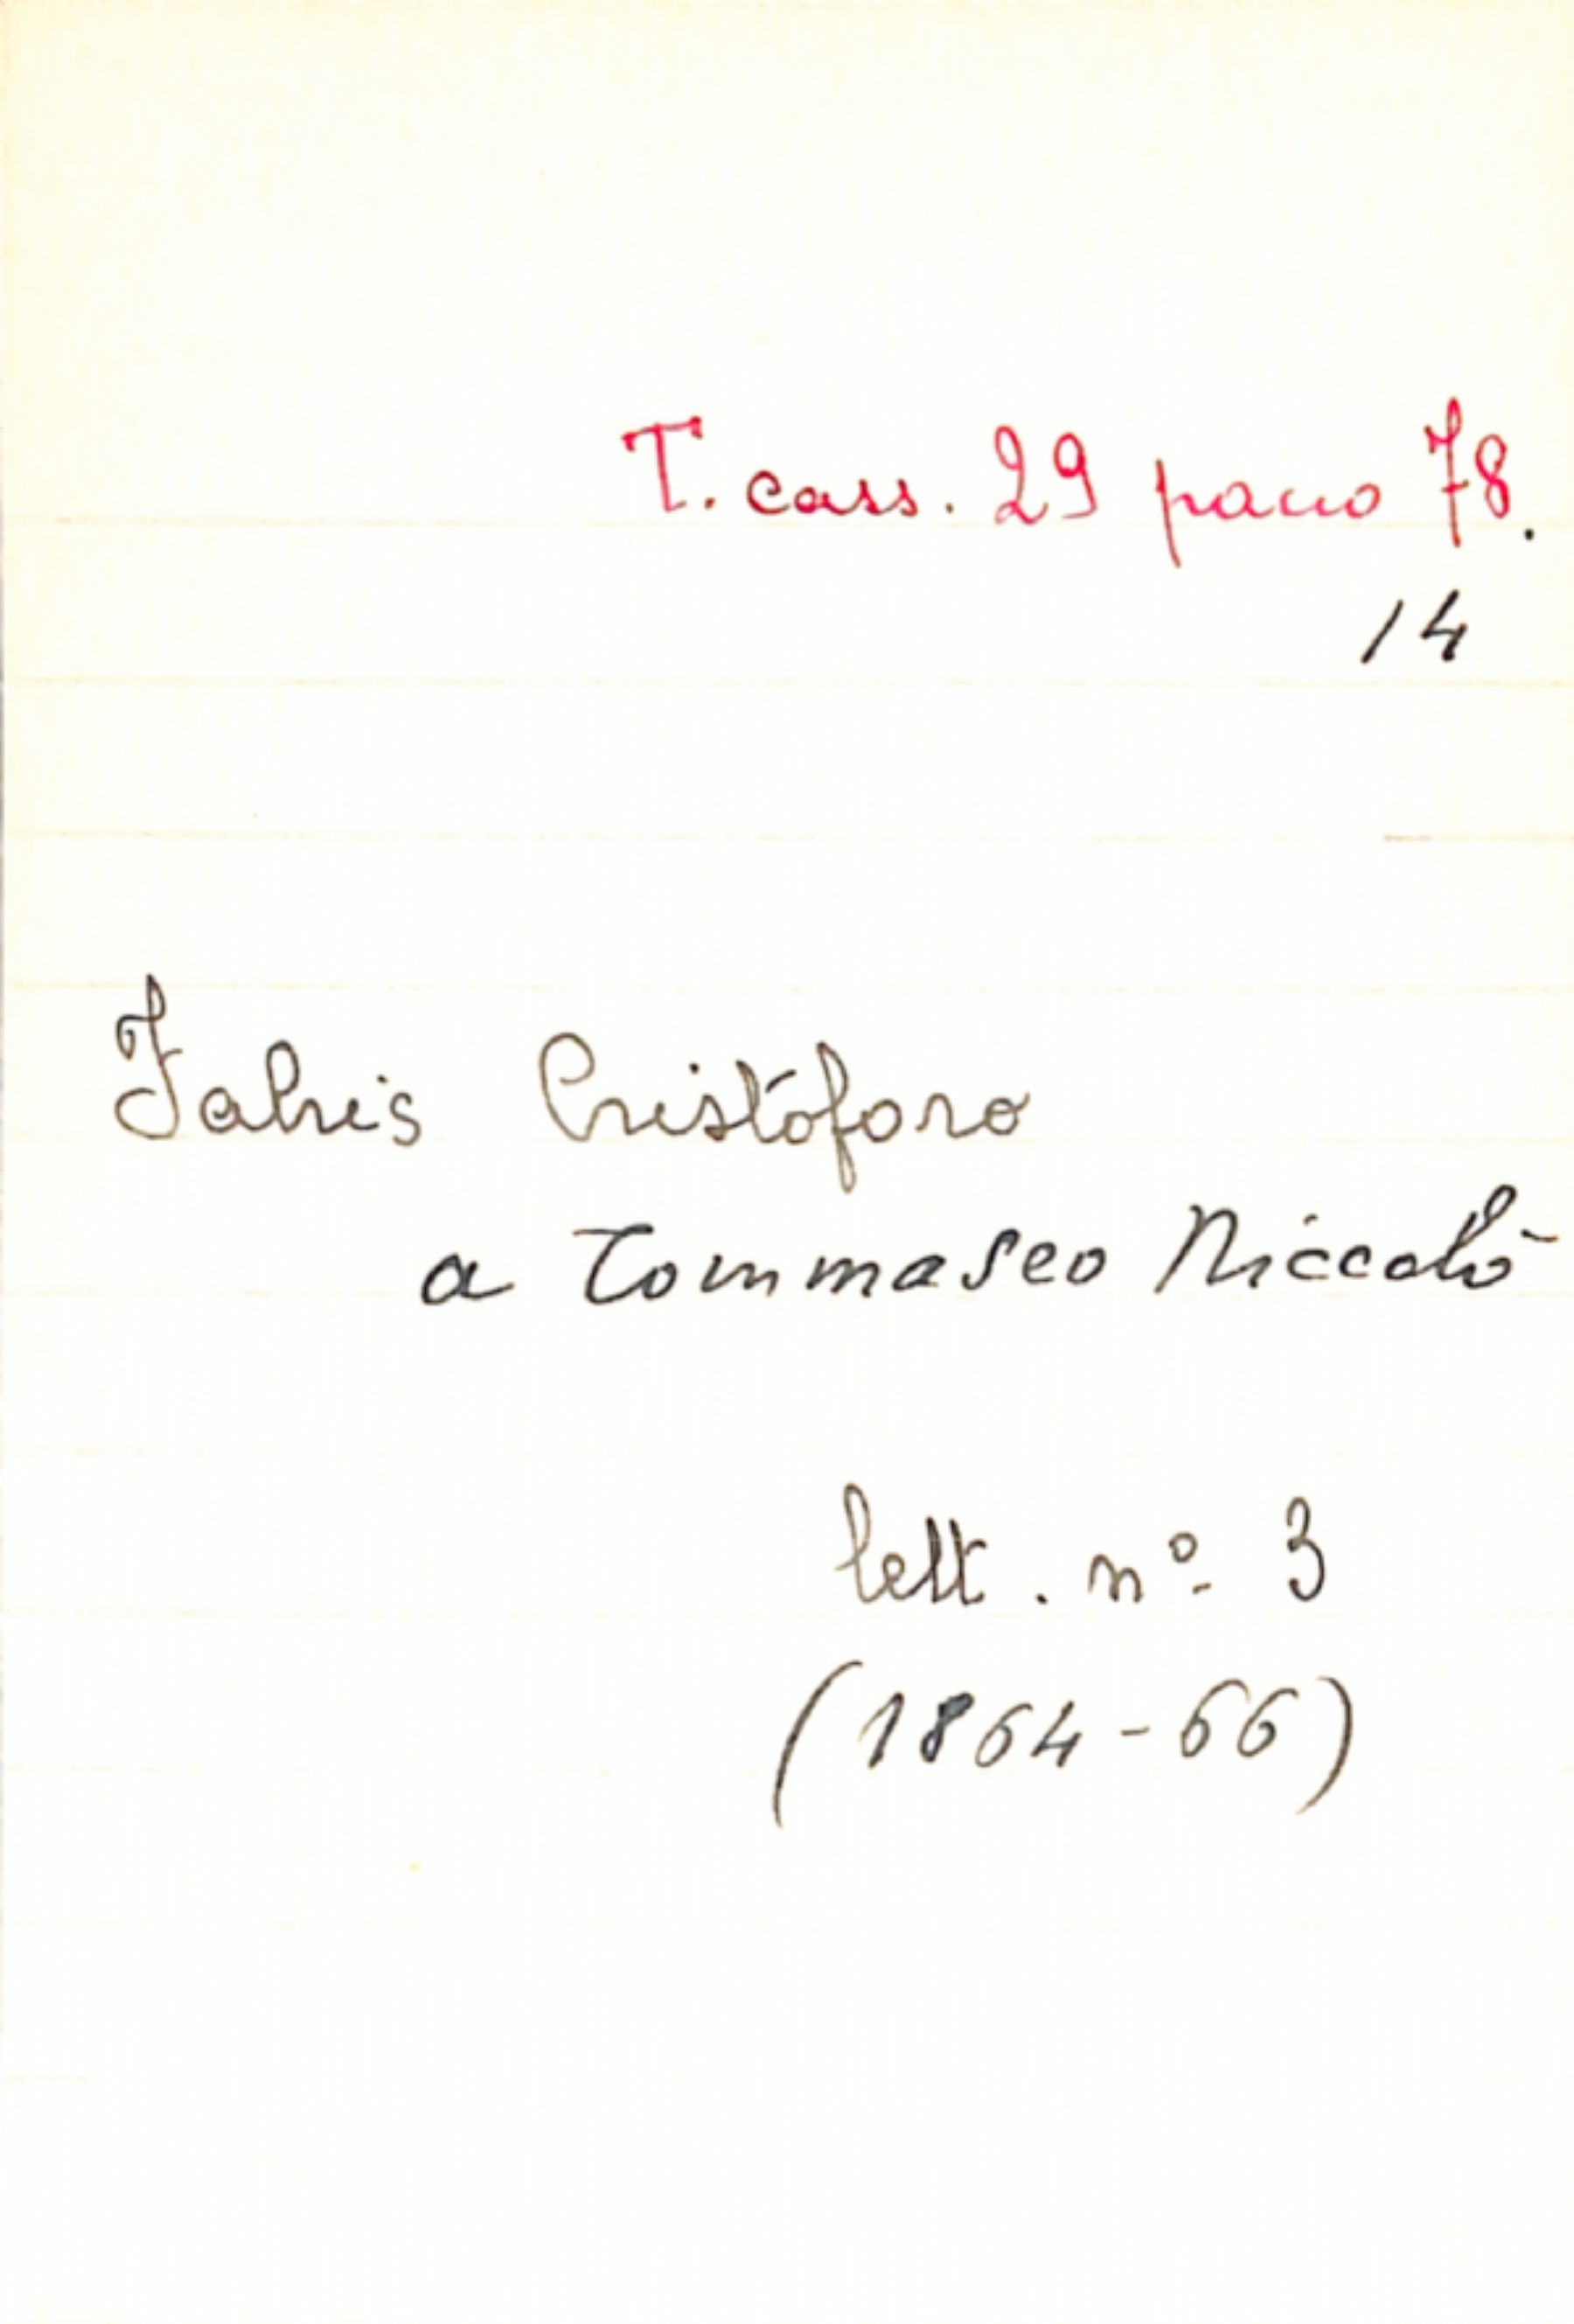 T. cass. 29 pacco 78.
14
Fabris Cristoforo
a Tommaseo Niccolò
lett. nº 3
(1864-66)